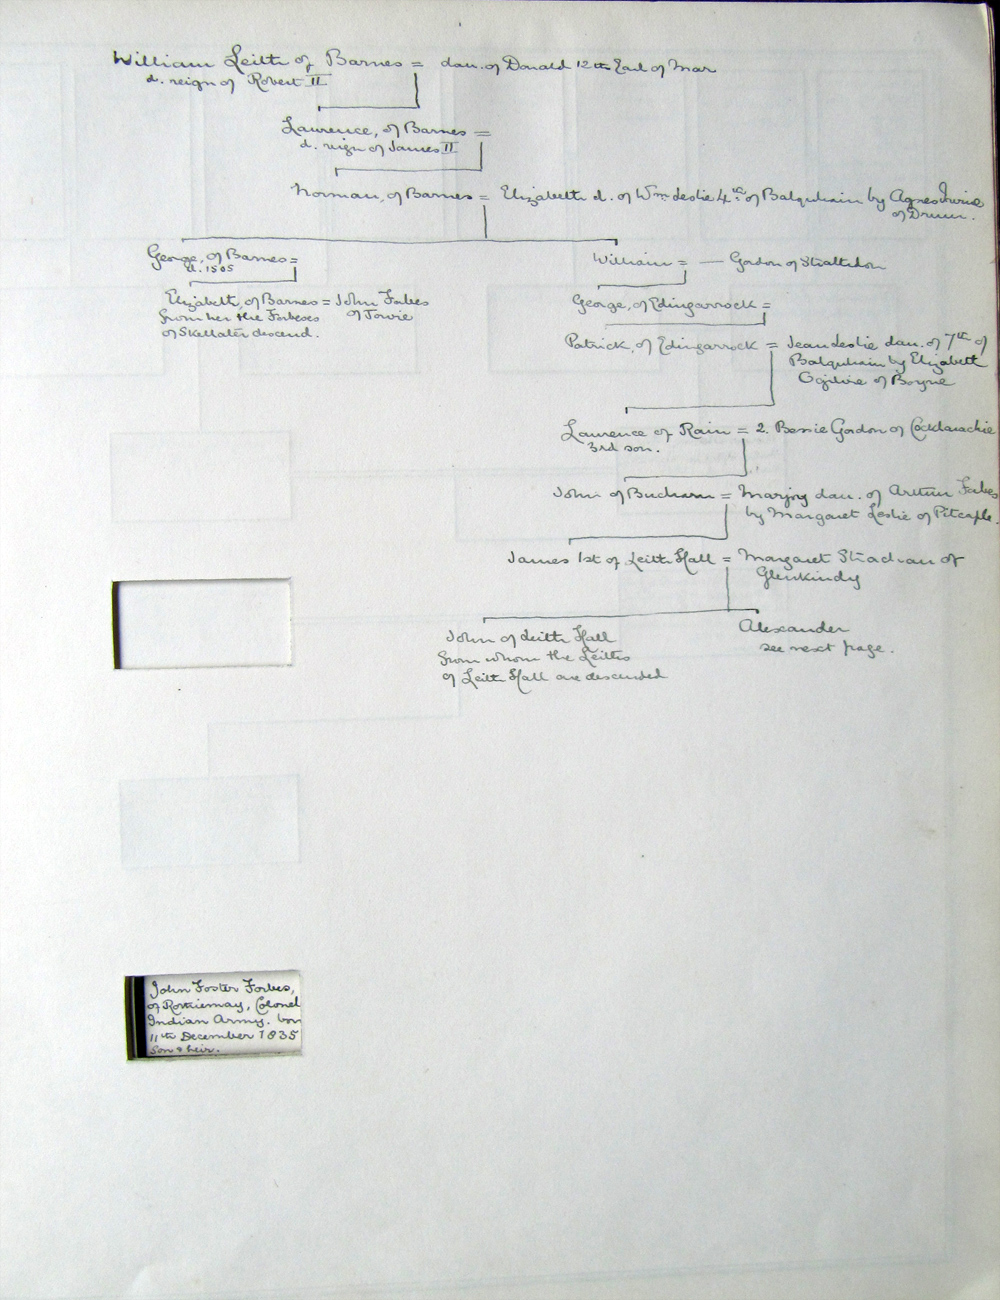 William Leith of Barnes = dau. of Donald 12th Earl of Mar
d. reign of Robert II
Laurence, of Barnes =
d. reign of James II
Norman, of Barnes = Elizabeth d. of Wm Leslie 4th of Balquhain by Agnes Irvine
of Drum.
George, of Barnes =
d. 1505
William = — Gordon of Strathdon
Elizabeth, of Barnes = John Forbes
from her the Forbeses of Towie
of Skellater descend.
George, of Edingarrock =
Patrick, of Edingarrock = Jean Leslie dau. of 7th of
Balquhain by Elizabeth
Ogilvie of Boyne
Laurence of Rain = 2. Bessie Gordon of Cocklarachie
3rd son.
John of Bucharn = Marjory dau. of Arthur Forbes
by Margaret Leslie of Pitcaple.
James 1st of Leith Hall = Margaret Strachan of
Glenkindy
John of Leith Hall
from whom the Leiths
of Leith Hall are descended
Alexander
see next page.
John Foster Forbes,
of Rothiemay, Colonel
Indian Army. born
11th December 1835
Son & heir.